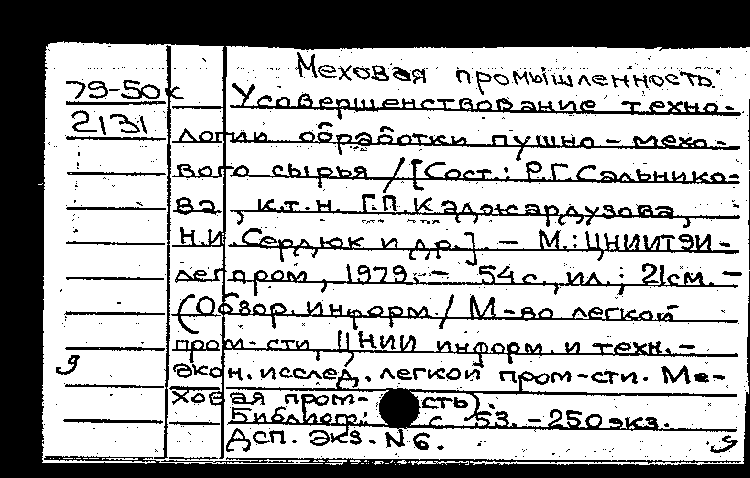 Меховая промышленность
79-50к Усовершенствование техно-
2131 логии обработки пушно-мехо-
вого сырья / [Сост.: Р.Г. Сальнико-
ва, к.т.н. Г.П. Каджардузова,
Н.И. Сердюк и др.]. - М.: ЦНИИТЭИ-
легпром, 1979. - 54 с., ил.; 21 см. -
(Обзор. информ. / М-во легкой
пром-сти, ЦНИИ информ. и техн.-
экон. исслед. легкой пром-сти. Ме-
ховая пром- сть).
Библиогр.: с. 53. - 250 экз.
Дсп. Экз. N 6.